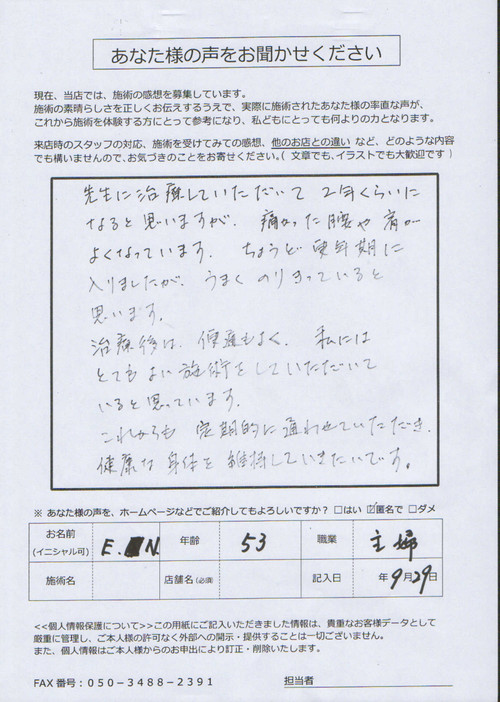 あなた様の声をお聞かせください
現在、当店では、施術の感想を募集しています。
施術の素晴らしさを正しくお伝えするうえで、実際に施術されたあなた様の率直な声が、
これから施術を体験する方にとって参考になり、私どもにとっても何よりの力となります。
来店時のスタッフの対応、施術を受けてみての感想、他のお店との違い など、どのような内容
でも構いませんので、お気づきのことをお寄せください。( 文章でも、イラストでも大歓迎です )
先生に治療していただいて 2年くらいに
なると思いますが、痛かった腰や肩が
よくなっています。ちょうど更年期に
入りましたが、うまくのりきっていると
思います。
治療後は、便通もよく、私には
とてもよい施術をしていただいて
いると思っています。
これからも 定期的に通わせていただき、
健康な身体を維持していきたいです。
※ あなた様の声を、ホームページなどでご紹介してもよろしいですか? □はい ☑匿名で □ダメ
お名前 (イニシャル可) E. N. 年齢 53 職業 主婦
施術名 店舗名 (必須) 記入日 年 9月29日
<<個人情報保護について>>この用紙にご記入いただきました情報は、貴重なお客様データとして
厳重に管理し、ご本人様の許可なく外部への開示・提供することは一切ございません。
また、個人情報はご本人様からのお申出により訂正・削除いたします。
FAX 番号:050-3488-2391 担当者